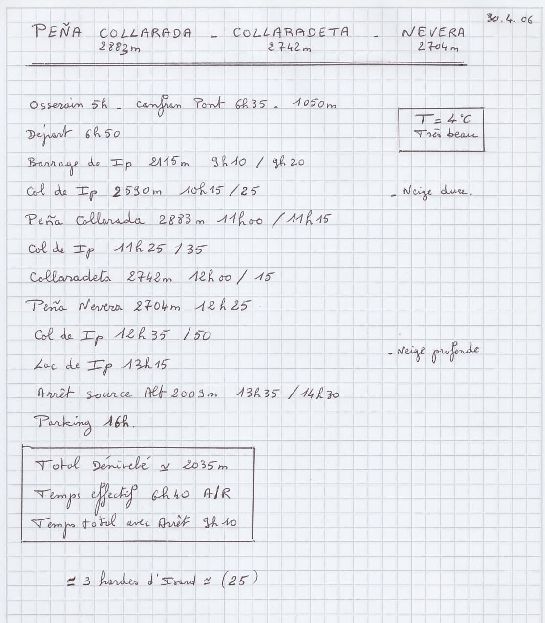 30.4.06
PEÑA COLLARADA - COLLARADETA - NEVERA
2883m 2742m 2704m
Osserain 5h - Canfran Pont 6h35 - 1050m
T = 4°C
Très beau
Départ 6h50
Barrage de Ip 2115m 9h10 / 9h20
Col de Ip 2590m 10h15 / 25
- Neige dure.
Peña Collarada 2883m 11h00 / 11h15
Col de Ip 11h25 / 35
Collaradeta 2742m 12h00 / 15
Peña Nevera 2704m 12h25
Col de Ip 12h35 / 50
- Neige profonde
Lac de Ip 13h15
Arrêt source Alt 2009m 13h35 / 14h30
Parking 16h.
Total Dénivelé ≃ 2035m
Temps effectif 6h40 A/R
Temps total avec Arrêt 9h10
≃ 3 hardes d'Isard ≃ (25)